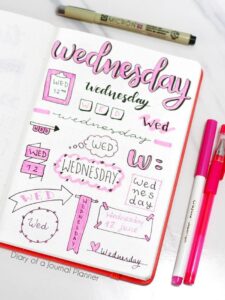 wednesday
WED
wednesday
WED
wednesday
Wed
WED
WED
12
WEDNESDAY
W:
wed
nes
day
WED
WEDNESDAY
Wednesday
12 June
Wednesday
Diary of a Journal Planner